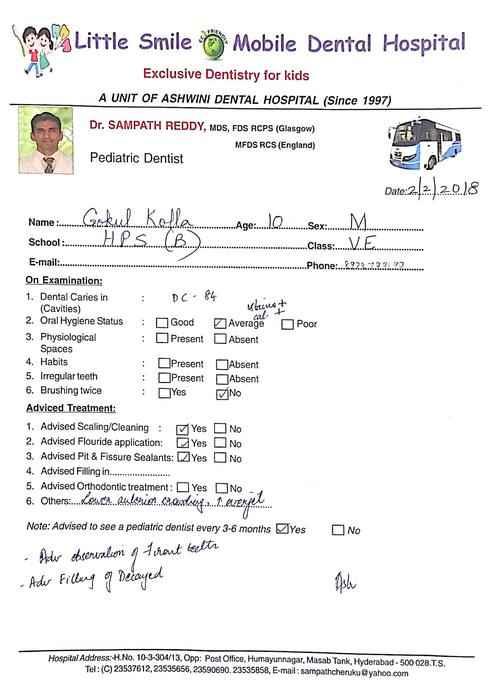 Little Smile ECO FRIENDLY Mobile Dental Hospital
Exclusive Dentistry for kids
A UNIT OF ASHWINI DENTAL HOSPITAL (Since 1997)
Dr. SAMPATH REDDY, MDS, FDS RCPS (Glasgow)
MFDS RCS (England)
Pediatric Dentist
Date: 2/2/2018
Name: Gokul Kolla Age: 10 Sex: M
School: HPS (B) Class: VE
E-mail: Phone:
On Examination:
1. Dental Caries in (Cavities) : DC - 84
stains + cal +
2. Oral Hygiene Status : Good Average Poor
3. Physiological Spaces : Present Absent
4. Habits : Present Absent
5. Irregular teeth : Present Absent
6. Brushing twice : Yes No
Adviced Treatment:
1. Advised Scaling/Cleaning : Yes No
2. Advised Flouride application: Yes No
3. Advised Pit & Fissure Sealants: Yes No
4. Advised Filling in....................
5. Advised Orthodontic treatment : Yes No
6. Others: Lower anterior crowding, ↑ overjet
Note: Advised to see a pediatric dentist every 3-6 months Yes No
- Adv observation of Front teeth
- Adv Filling of Decayed
Hospital Address:-H.No. 10-3-304/13, Opp: Post Office, Humayunnagar, Masab Tank, Hyderabad - 500 028.T.S.
Tel : (C) 23537612, 23535656, 23590690. 23535858, E-mail : sampathcheruku@yahoo.com